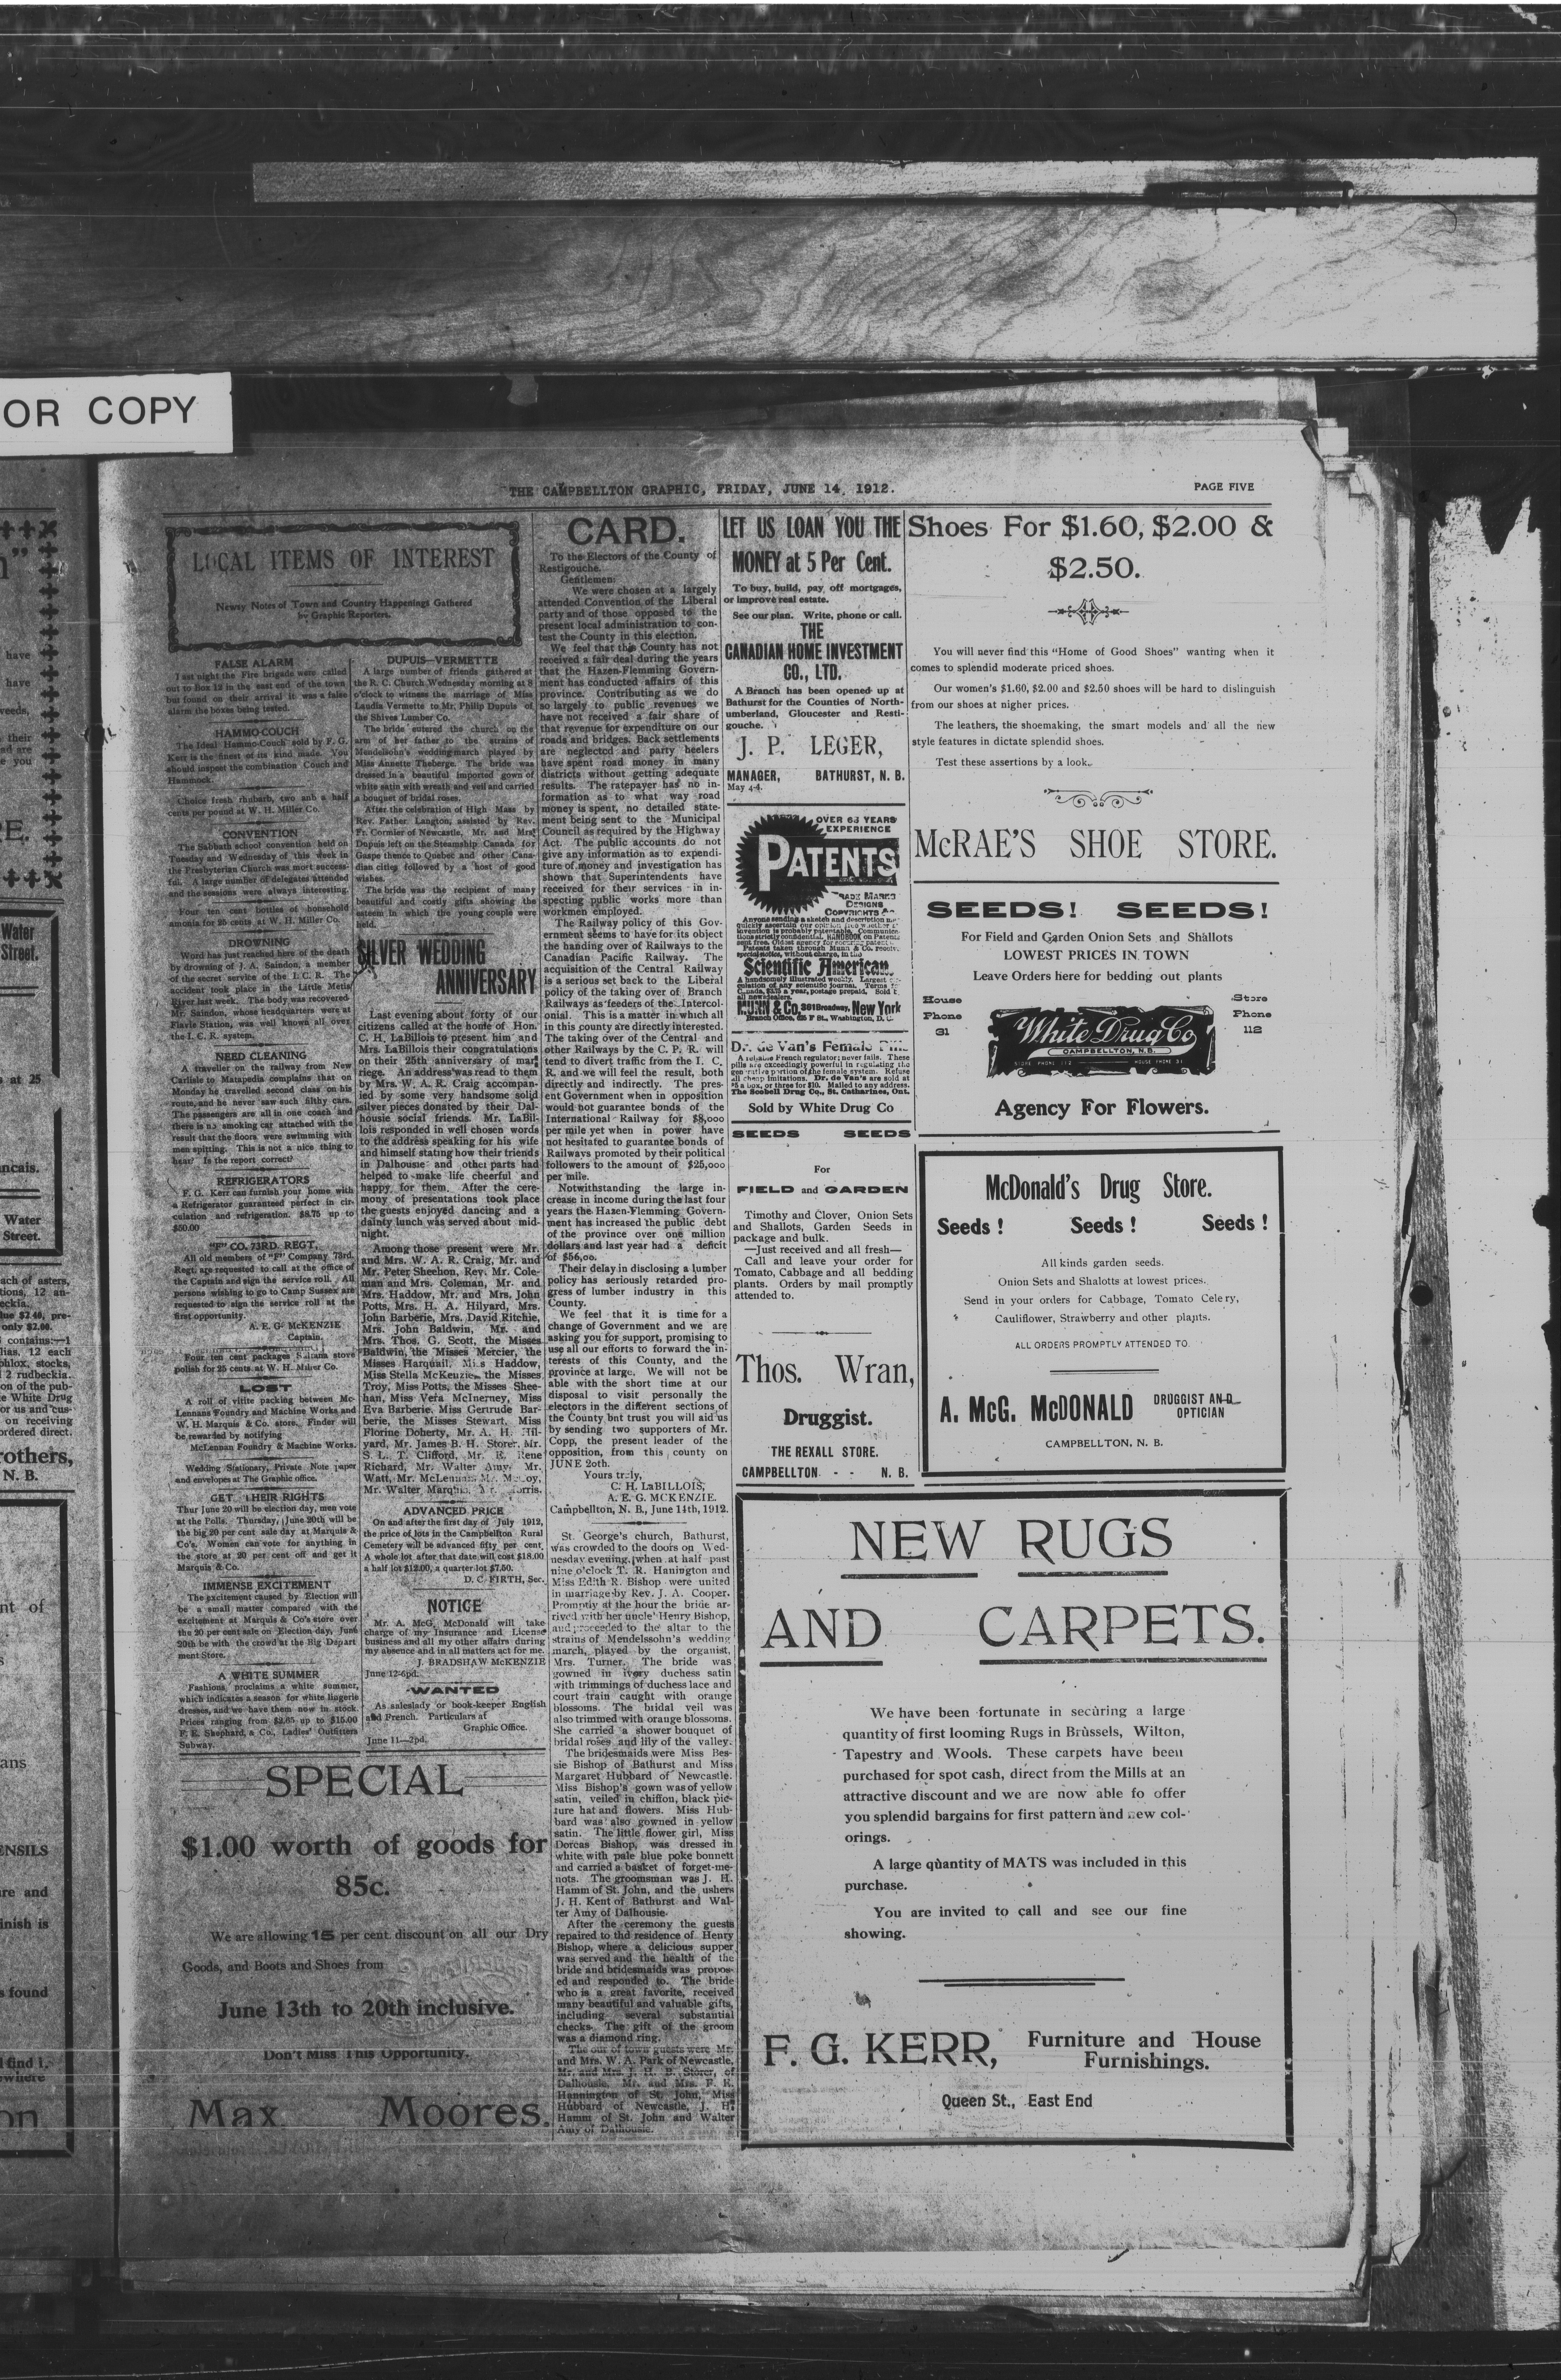 OR COPY
THE CAMPBELLTON GRAPHIC, FRIDAY, JUNE 14, 1912.
PAGE FIVE
LOCAL ITEMS OF INTEREST
Newsy Notes of Town and Country Happenings Gathered
by Graphic Reporters.
FALSE ALARM
Last night the Fire brigade were called
out to Box 12 in the east end of the town
but found on their arrival it was a false
alarm the boxes being tested.
HAMMO-COUCH
The Ideal Hammo-Couch sold by F. G.
Kerr is the finest of its kind made. You
should inspect the combination Couch and
Hammock.
Choice fresh rhubarb, two anb a half
cents per pound at W. H. Miller Co.
CONVENTION
The Sabbath school convention held on
Tuesday and Wednesday of this week in
the Presbyterian Church was most success-
ful. A large number of delegates attended
and the sessions were always interesting.
Four ten cent bottles of household
amonia for 25 cents at W. H. Miller Co.
DROWNING
Word has just reached here of the death
by drowning of J. A. Saindon, a member
of the secret service of the I. C. R. The
accident took place in the Little Metis
River last week. The body was recovered
Mr. Saindon, whose headquarters were at
Flavie Station, was well known all over
the I. C. R. system.
NEED CLEANING
A traveller on the railway from New
Carlisle to Matapedia complains that on
Monday he travelled second class on his
route, and he never saw such filthy cars.
The passengers are all in one coach and
there is no smoking car attached with the
result that the floors were swimming with
men spitting. This is not a nice thing to
hear? Is the report correct?
REFRIGERATORS
F. G. Kerr can furnish your home with
a Refrigerator guaranteed perfect in cir-
culation and refrigeration. $8.75 up to
$50.00
"F" CO. 73RD. REGT.
All old members of "F" Company 73rd.
Regt. are requested to call at the office of
the Captain and sign the service roll. All
persons wishing to go to Camp Sussex are
requested to sign the service roll at the
first opportunity.
A. E. G. McKENZIE
Captain.
Four ten cent packages Sultana stove
polish for 25 cents at W. H. Miller Co.
LOST
A roll of vitite packing between Mc-
Lennans Foundry and Machine Works and
W. H. Marquis & Co. store. Finder will
be rewarded by notifying
McLennan Foundry & Machine Works.
Wedding Stationary, Private Note paper
and envelopes at The Graphic office.
GET THEIR RIGHTS
Thur June 20 will be election day, men vote
at the Polls. Thursday, June 20th will be
the big 20 per cent sale day at Marquis &
Co's. Women can vote for anything in
the store at 20 per cent off and get it
Marquis & Co.
IMMENSE EXCITEMENT
The excitement caused by Election will
be a small matter compared with the
excitement at Marquis & Co's store over
the 20 per cent sale on Election day, June
20th be with the crowd at the Big Depart
ment Store.
A WHITE SUMMER
Fashions proclaims a white summer,
which indicates a season for white lingerie
dresses, and we have them now in stock.
Prices ranging from $2.65 up to $15.00
F. E. Shephard, & Co., Ladies' Outfitters
Subway.
DUPUIS—VERMETTE
A large number of friends gathered at
the R. C. Church Wednesday morning at 8
o'clock to witness the marriage of Miss
Laudia Vermette to Mr. Philip Dupuis of
the Shives Lumber Co.
The bride entered the church on the
arm of her father to the strains of
Mendelsohn's wedding march played by
Miss Annette Theberge. The bride was
dressed in a beautiful imported gown of
white satin with wreath and veil and carried
a bouquet of bridal roses.
After the celebration of High Mass by
Rev. Father Langton, assisted by Rev.
Fr. Cormier of Newcastle, Mr. and Mrs.
Dupuis left on the Steamship Canada for
Gaspe thence to Quebec and other Cana-
dian cities followed by a host of good
wishes.
The bride was the recipient of many
beautiful and costly gifts showing the
esteem in which the young couple were
held.
SILVER WEDDING
ANNIVERSARY
Last evening about forty of our
citizens called at the home of Hon.
C. H. LaBillois to present him and
Mrs. LaBillois their congratulations
on their 25th anniversary of mar
riege. An address was read to them
by Mrs. W. A. R. Craig accompan-
ied by some very handsome solid
silver pieces donated by their Dal-
housie social friends. Mr. LaBil-
lois responded in well chosen words
to the address speaking for his wife
and himself stating how their friends
in Dalhousie and other parts had
helped to make life cheerful and
happy for them. After the cere-
mony of presentations took place
the guests enjoyed dancing and a
dainty lunch was served about mid-
night.
Among those present were Mr.
and Mrs. W. A. R. Craig, Mr. and
Mr. Peter Sheehon, Rev. Mr. Cole-
man and Mrs. Coleman, Mr. and
Mrs. Haddow, Mr. and Mrs. John
Potts, Mrs. H. A. Hilyard, Mrs.
John Barberie, Mrs. David Ritchie,
Mrs. John Baldwin, Mr. and
Mrs. Thos. G. Scott, the Misses
Baldwin, the Misses Mercier, the
Misses Harquail, Miss Haddow,
Miss Stella McKenzie, the Misses
Troy, Miss Potts, the Misses Shee-
han, Miss Vera McInerney, Miss
Eva Barberie, Miss Gertrude Bar-
berie, the Misses Stewart, Miss
Florine Doherty, Mr. A. H. Hil-
yard, Mr. James B. H. Storer, Mr.
S. L. T. Clifford, Mr. R. Rene
Richard, Mr. Walter Amy, Mr.
Watt, Mr. McLennan,
Mr. Walter Marquis,
ADVANCED PRICE
On and after the first day of July 1912,
the price of lots in the Campbellton Rural
Cemetery will be advanced fifty per cent.
A whole lot after that date will cost $18.00
a half lot $12.00, a quarter lot $7.50.
D. C. FIRTH, Sec.
NOTICE
Mr. A. McG. McDonald will take
charge of my Insurance and License
business and all my other affairs during
my absence and in all matters act for me.
J. BRADSHAW McKENZIE
June 12-6pd.
WANTED
As saleslady or book-keeper English
and French. Particulars at
Graphic Office.
June 11—2pd.
SPECIAL
$1.00 worth of goods for
85c.
We are allowing 15 per cent. discount on all our Dry
Goods, and Boots and Shoes from
June 13th to 20th inclusive.
Don't Miss This Opportunity.
Max Moores.
CARD.
To the Electors of the County of
Restigouche.
Gentlemen:
We were chosen at a largely
attended Convention of the Liberal
party and of those opposed to the
present local administration to con-
test the County in this election.
We feel that this County has not
received a fair deal during the years
that the Hazen-Flemming Govern-
ment has conducted affairs of this
province. Contributing as we do
so largely to public revenues we
have not received a fair share of
that revenue for expenditure on our
roads and bridges. Back settlements
are neglected and party heelers
have spent road money in many
districts without getting adequate
results. The ratepayer has no in-
formation as to what way road
money is spent, no detailed state-
ment being sent to the Municipal
Council as required by the Highway
Act. The public accounts do not
give any information as to expendi-
ture of money and investigation has
shown that Superintendents have
received for their services in in-
specting public works more than
workmen employed.
The Railway policy of this Gov-
ernment seems to have for its object
the handing over of Railways to the
Canadian Pacific Railway. The
acquisition of the Central Railway
is a serious set back to the Liberal
policy of the taking over of Branch
Railways as feeders of the Intercol-
onial. This is a matter in which all
in this county are directly interested.
The taking over of the Central and
other Railways by the C. P. R. will
tend to divert traffic from the I. C.
R. and we will feel the result, both
directly and indirectly. The pres-
ent Government when in opposition
would not guarantee bonds of the
International Railway for $8,000
per mile yet when in power have
not hesitated to guarantee bonds of
Railways promoted by their political
followers to the amount of $25,000
per mile.
Notwithstanding the large in-
crease in income during the last four
years the Hazen-Flemming Govern-
ment has increased the public debt
of the province over one million
dollars and last year had a deficit
of $56,00.
Their delay in disclosing a lumber
policy has seriously retarded pro-
gress of lumber industry in this
County.
We feel that it is time for a
change of Government and we are
asking you for support, promising to
use all our efforts to forward the in-
terests of this County, and the
province at large. We will not be
able with the short time at our
disposal to visit personally the
electors in the different sections of
the County but trust you will aid us
by sending two supporters of Mr.
Copp, the present leader of the
opposition, from this county on
JUNE 20th.
Yours truly,
C. H. LaBILLOIS,
A. E. G. MCKENZIE.
Campbellton, N. B., June 14th, 1912.
St. George's church, Bathurst,
was crowded to the doors on Wed-
nesday evening, when at half past
nine o'clock T. R. Hanington and
Miss Edith R. Bishop were united
in marriage by Rev. J. A. Cooper.
Promptly at the hour the bride ar-
rived with her uncle Henry Bishop,
and proceeded to the altar to the
strains of Mendelssohn's wedding
march, played by the organist,
Mrs. Turner. The bride was
gowned in ivory duchess satin
with trimmings of duchess lace and
court train caught with orange
blossoms. The bridal veil was
also trimmed with orange blossoms.
She carried a shower bouquet of
bridal roses and lily of the valley.
The bridesmaids were Miss Bes-
sie Bishop of Bathurst and Miss
Margaret Hubbard of Newcastle.
Miss Bishop's gown was of yellow
satin, veiled in chiffon, black pic-
ture hat and flowers. Miss Hub-
bard was also gowned in yellow
satin. The little flower girl, Miss
Dorcas Bishop, was dressed in
white with pale blue poke bonnett
and carried a basket of forget-me-
nots. The groomsman was J. H.
Hamm of St. John, and the ushers
J. H. Kent of Bathurst and Wal-
ter Amy of Dalhousie.
After the ceremony the guests
repaired to thd residence of Henry
Bishop, where a delicious supper
was served and the health of the
bride and bridesmaids was propos-
ed and responded to. The bride
who is a great favorite, received
many beautiful and valuable gifts,
including several substantial
checks. The gift of the groom
was a diamond ring.
The out of town guests were Mr.
and Mrs. W. A. Park of Newcastle,
Mr. and Mrs. J. H. B. Storer, of
Dalhousie, Mr. and Mrs. F. R.
Hannington of St. John, Miss
Hubbard of Newcastle, J. H.
Hamm of St. John and Walter
Amy of Dalhousie.
LET US LOAN YOU THE
MONEY at 5 Per Cent.
To buy, build, pay off mortgages,
or improve real estate.
See our plan. Write, phone or call.
THE
CANADIAN HOME INVESTMENT
CO., LTD.
A Branch has been opened up at
Bathurst for the Counties of North-
umberland, Gloucester and Resti-
gouche.
J. P. LEGER,
MANAGER, BATHURST, N. B.
May 4-4.
OVER 65 YEARS'
EXPERIENCE
PATENTS
TRADE MARKS
DESIGNS
COPYRIGHTS &c
Anyone sending a sketch and description may
quickly ascertain our opinion free whether an
invention is probably patentable. Communica-
tions strictly confidential. HANDBOOK on Patents
sent free. Oldest agency for securing patents.
Patents taken through Munn & Co. receive
special notice, without charge, in the
Scientific American.
A handsomely illustrated weekly. Largest cir-
culation of any scientific journal. Terms for
Canada, $3.75 a year, postage prepaid. Sold by
all newsdealers.
MUNN & Co. 361 Broadway, New York
Branch Office, 625 F St., Washington, D. C.
Dr. de Van's Female Pills
A reliable French regulator; never fails. These
pills are exceedingly powerful in regulating the
generative portion of the female system. Refuse
all cheap imitations. Dr. de Van's are sold at
$5 a box, or three for $10. Mailed to any address.
The Scobell Drug Co., St. Catharines, Ont.
Sold by White Drug Co
SEEDS SEEDS
For
FIELD and GARDEN
Timothy and Clover, Onion Sets
and Shallots, Garden Seeds in
package and bulk.
—Just received and all fresh—
Call and leave your order for
Tomato, Cabbage and all bedding
plants. Orders by mail promptly
attended to.
Thos. Wran,
Druggist.
THE REXALL STORE.
CAMPBELLTON - - N. B.
Shoes For $1.60, $2.00 &
$2.50.
You will never find this "Home of Good Shoes" wanting when it
comes to splendid moderate priced shoes.
Our women's $1.60, $2.00 and $2.50 shoes will be hard to dislinguish
from our shoes at nigher prices.
The leathers, the shoemaking, the smart models and all the new
style features in dictate splendid shoes.
Test these assertions by a look.
McRAE'S SHOE STORE.
SEEDS! SEEDS!
For Field and Garden Onion Sets and Shallots
LOWEST PRICES IN TOWN
Leave Orders here for bedding out plants
House
Phone
31
White Drug Co
CAMPBELLTON, N.B.
STORE PHONE 112 HOUSE PHONE 31
Store
Phone
112
Agency For Flowers.
McDonald's Drug Store.
Seeds! Seeds! Seeds!
All kinds garden seeds.
Onion Sets and Shalotts at lowest prices.
Send in your orders for Cabbage, Tomato Celery,
Cauliflower, Strawberry and other plants.
ALL ORDERS PROMPTLY ATTENDED TO.
A. McG. McDONALD DRUGGIST AND
OPTICIAN
CAMPBELLTON, N. B.
NEW RUGS
AND CARPETS.
We have been fortunate in securing a large
quantity of first looming Rugs in Brussels, Wilton,
Tapestry and Wools. These carpets have been
purchased for spot cash, direct from the Mills at an
attractive discount and we are now able fo offer
you splendid bargains for first pattern and new col-
orings.
A large quantity of MATS was included in this
purchase.
You are invited to call and see our fine
showing.
F. G. KERR, Furniture and House
Furnishings.
Queen St., East End